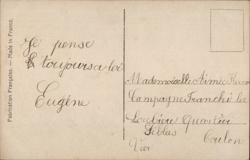 Fabrication Française. — Made in France.
Je pense
à toujours a toi
Eugène
Mademoiselle Aimée
Campagne Franchi les
Quartier
Toulon
Var